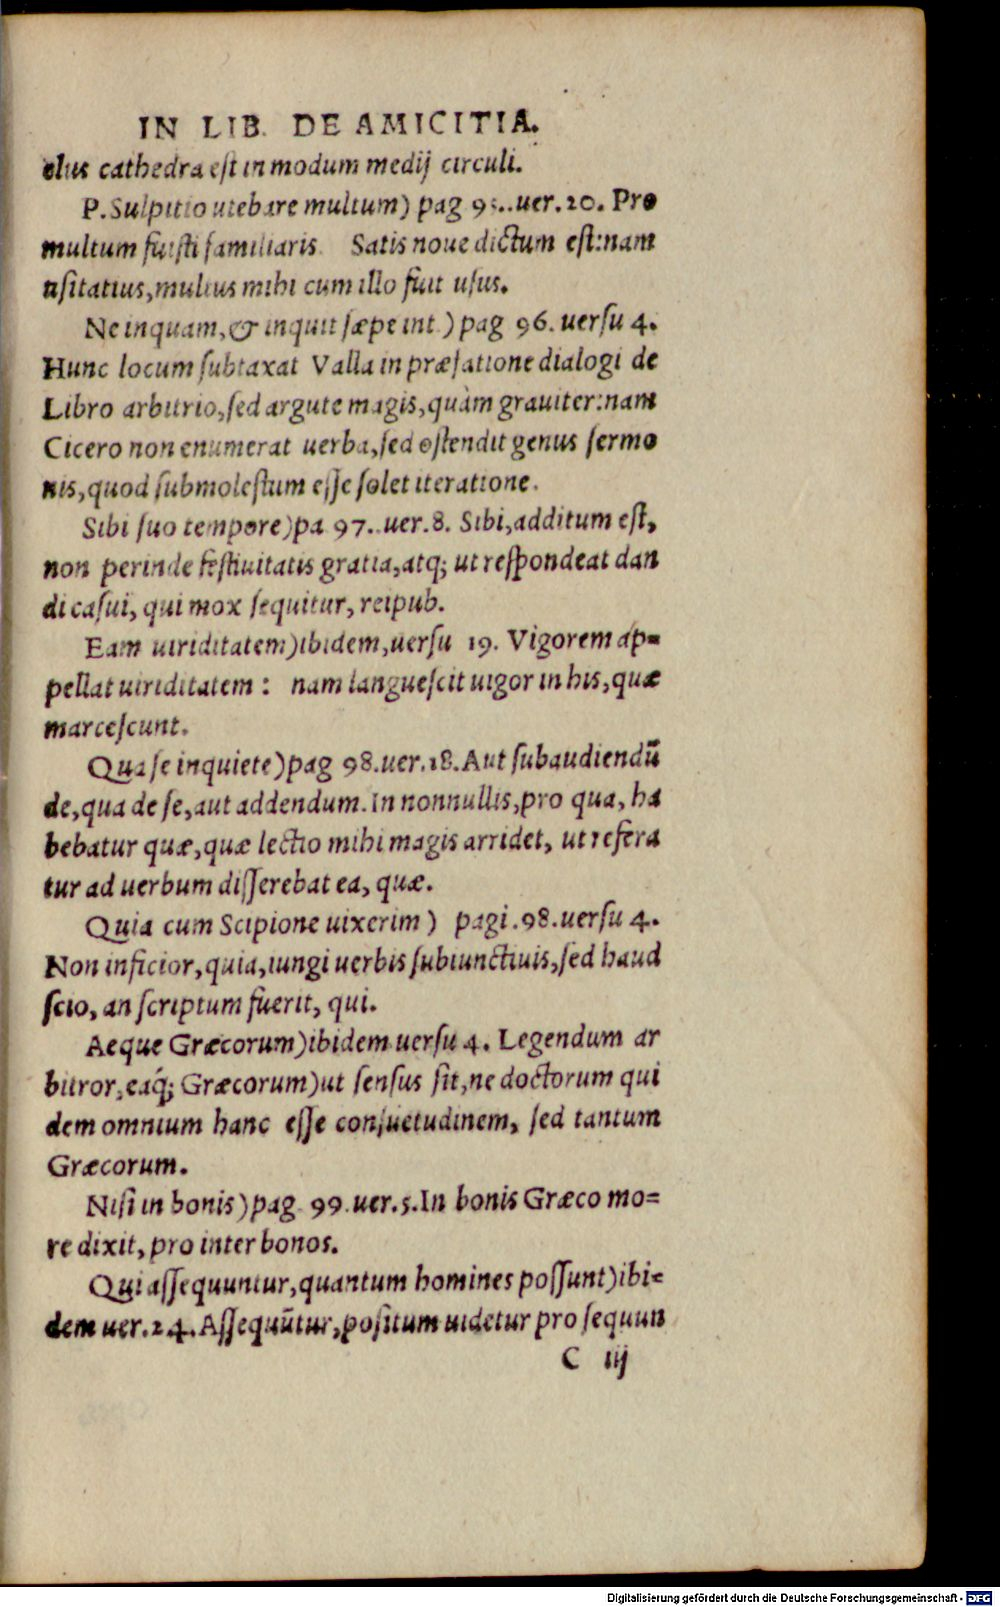 IN LIB. DE AMICITIA.
elus cathedra est in modum medij circuli.
P. Sulpitio utebare multum) pag 95..uer.20. Pro
multum fuisti familiaris. Satis noue dictum est:nam
usitatius, multus mihi cum illo fuit usus.
Ne inquam, & inquit sæpe int.) pag 96. uersu 4.
Hunc locum subtaxat Valla in præfatione dialogi de
Libro arbitrio, sed argute magis, quàm grauiter:nam
Cicero non enumerat uerba, sed ostendit genus sermo
nis, quod submolestum esse solet iteratione.
Sibi suo tempore) pa 97..uer.8. Sibi, additum est,
non perinde festiuitatis gratia, atq; ut respondeat dan
di casui, qui mox sequitur, reipub.
Eam uiriditatem) ibidem, uersu 19. Vigorem ap=
pellat uiriditatem: nam languescit uigor in his, quæ
marcescunt.
Qua se inquiete) pag 98.uer.18. Aut subaudiendū
de, qua de se, aut addendum. In nonnullis, pro qua, ha
bebatur quæ, quæ lectio mihi magis arridet, ut refera
tur ad uerbum disserebat ea, quæ.
Quia cum Scipione uixerim) pagi.98.uersu 4.
Non inficior, quia, iungi uerbis subiunctiuis, sed haud
scio, an scriptum fuerit, qui.
Aeque Græcorum) ibidem uersu 4. Legendum ar
bitror, eaq́; Græcorum) ut sensus sit, ne doctorum qui
dem omnium hanc esse consuetudinem, sed tantum
Græcorum.
Nisi in bonis) pag 99.uer.5. In bonis Græco mo=
re dixit, pro inter bonos.
Qui assequuntur, quantum homines possunt) ibi=
dem uer.24. Assequūtur, positum uidetur pro sequun
C iij
Digitalisierung gefördert durch die Deutsche Forschungsgemeinschaft - DFG